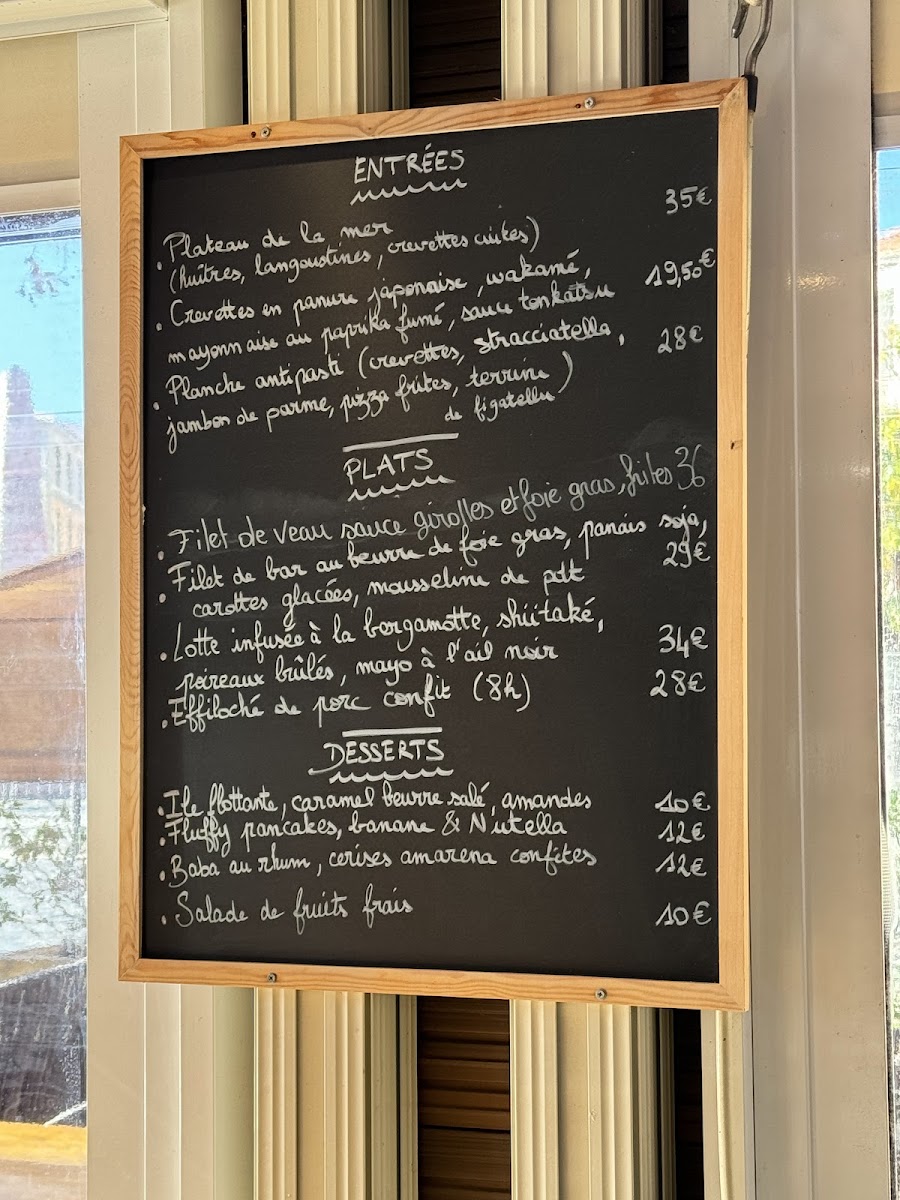 ENTRÉES
• Plateau de la mer 35€
(huîtres, langoustines, crevettes cuites)
• Crevettes en panure japonaise, wakamé, 19,50€
mayonnaise au paprika fumé, sauce tonkatsu
• Planche antipasti (crevettes, stracciatella, 28€
jambon de parme, pizza frites, terrine)
de figatellu
PLATS
• Filet de veau sauce girolles et foie gras, frites 36
• Filet de bar au beurre de foie gras, panais soja,
carottes glacées, mousseline de pdt 29€
• Lotte infusée à la bergamotte, shiitaké,
poireaux brûlés, mayo à l'ail noir 34€
• Effiloché de porc confit (8h) 28€
DESSERTS
• Ile flottante, caramel beurre salé, amandes 10€
• Fluffy pancakes, banane & Nutella 12€
• Baba au rhum, cerises amarena confites 12€
• Salade de fruits frais 10€